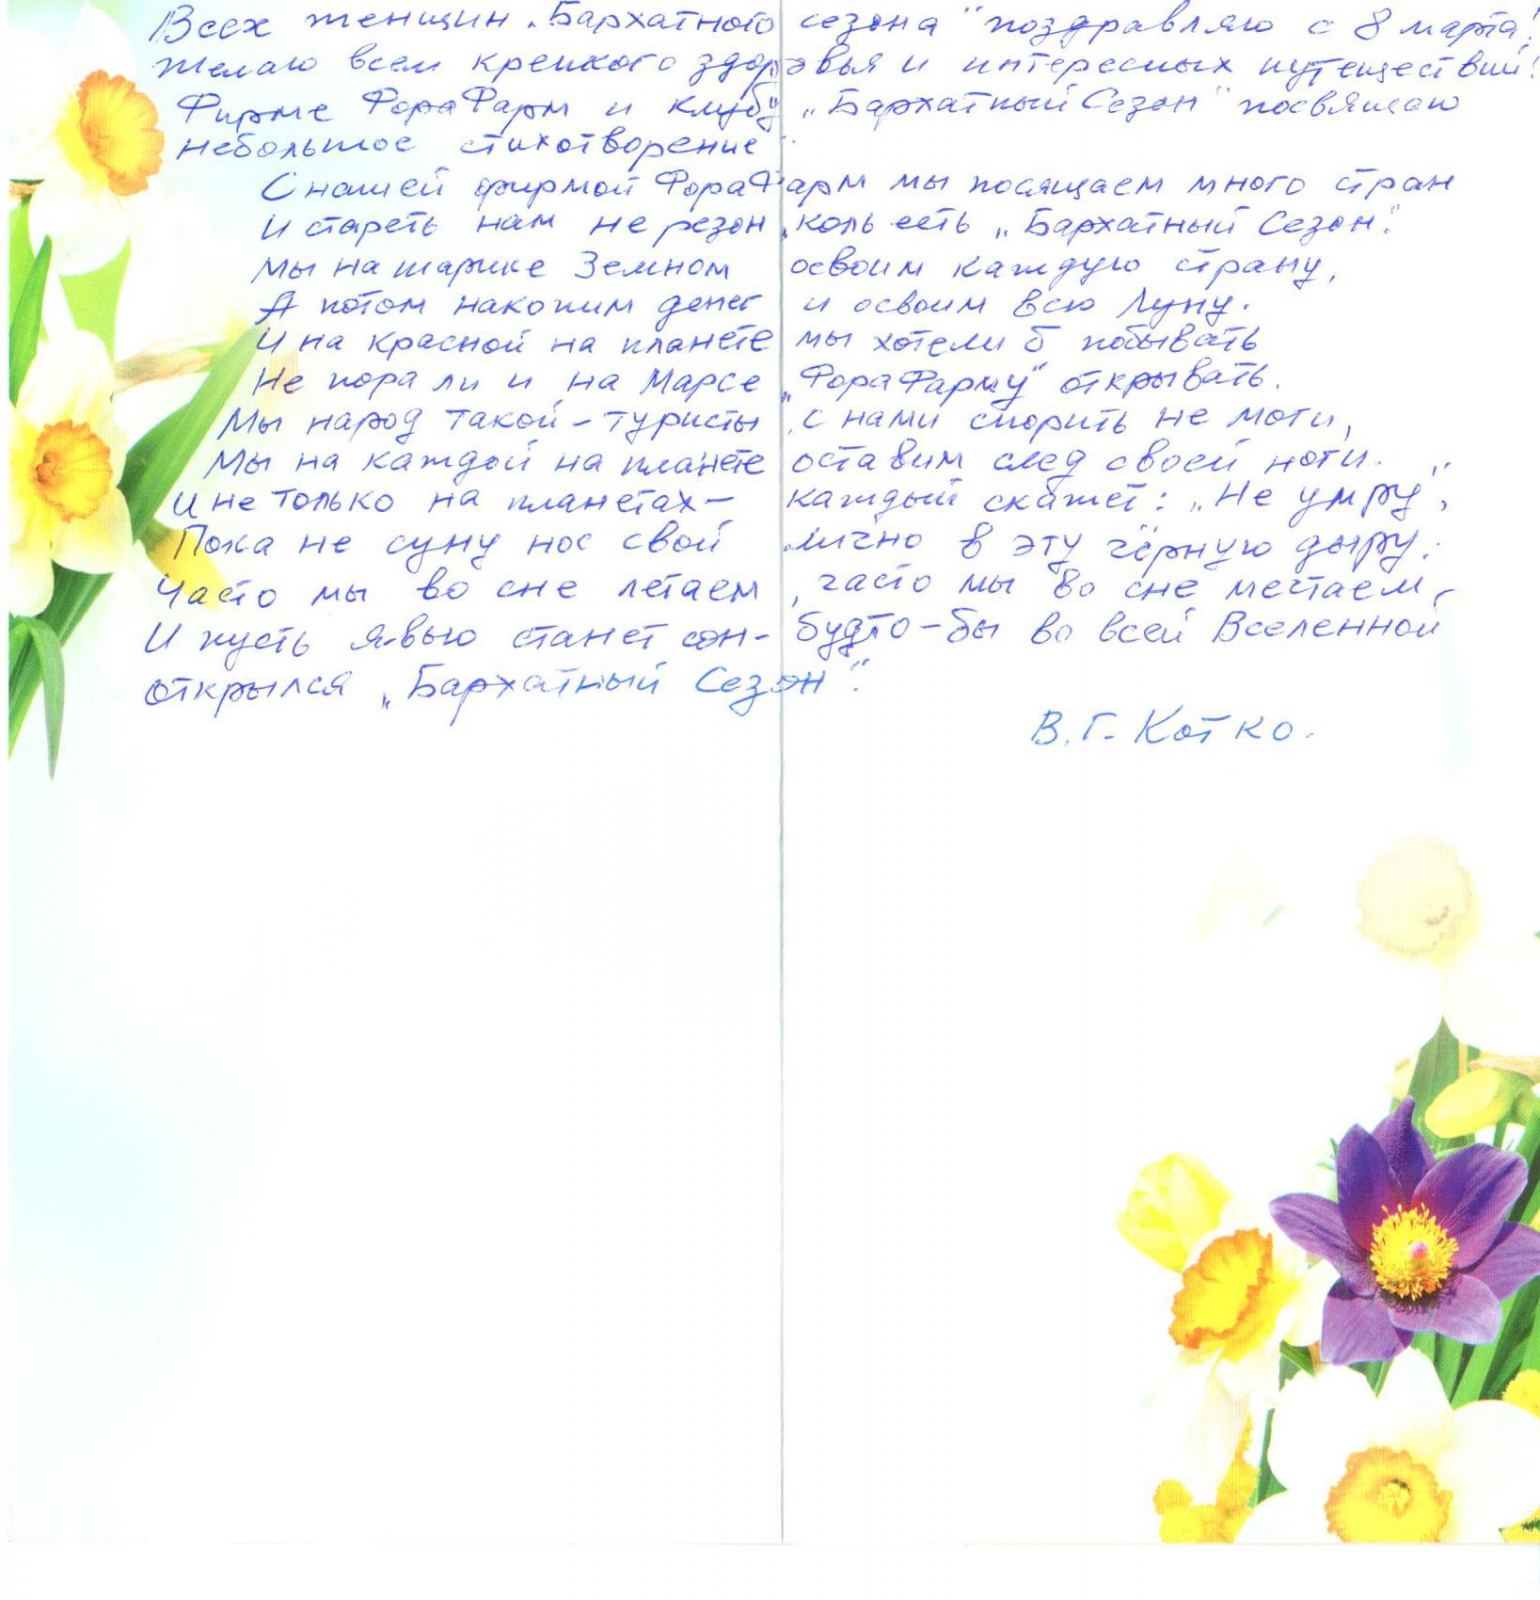 Всех женщин „Бархатного сезона" поздравляю с 8 марта!
Желаю всем крепкого здоровья и интересных путешествий!
Фирме ФораФарм и клубу „Бархатный Сезон" посвящаю
небольшое стихотворение.
С нашей фирмой ФораФарм мы посящаем много стран
И стареть нам не резон, коль есть „Бархатный Сезон".
Мы на шарике Земном освоим каждую страну,
А потом накопим денег и освоим всю Луну.
И на красной на планете мы хотели б побывать
Не пора ли и на Марсе „ФораФарму" открывать.
Мы народ такой – туристы, с нами спорить не моги,
Мы на каждой на планете оставим след своей ноги.
И не только на планетах – каждый скажет: „Не умру",
Пока не суну нос свой лично в эту чёрную дыру.
Часто мы во сне летаем, часто мы во сне мечтаем,
И пусть явью станет сон - будто-бы во всей Вселенной
открылся „Бархатный Сезон".
В.Г. Котко.